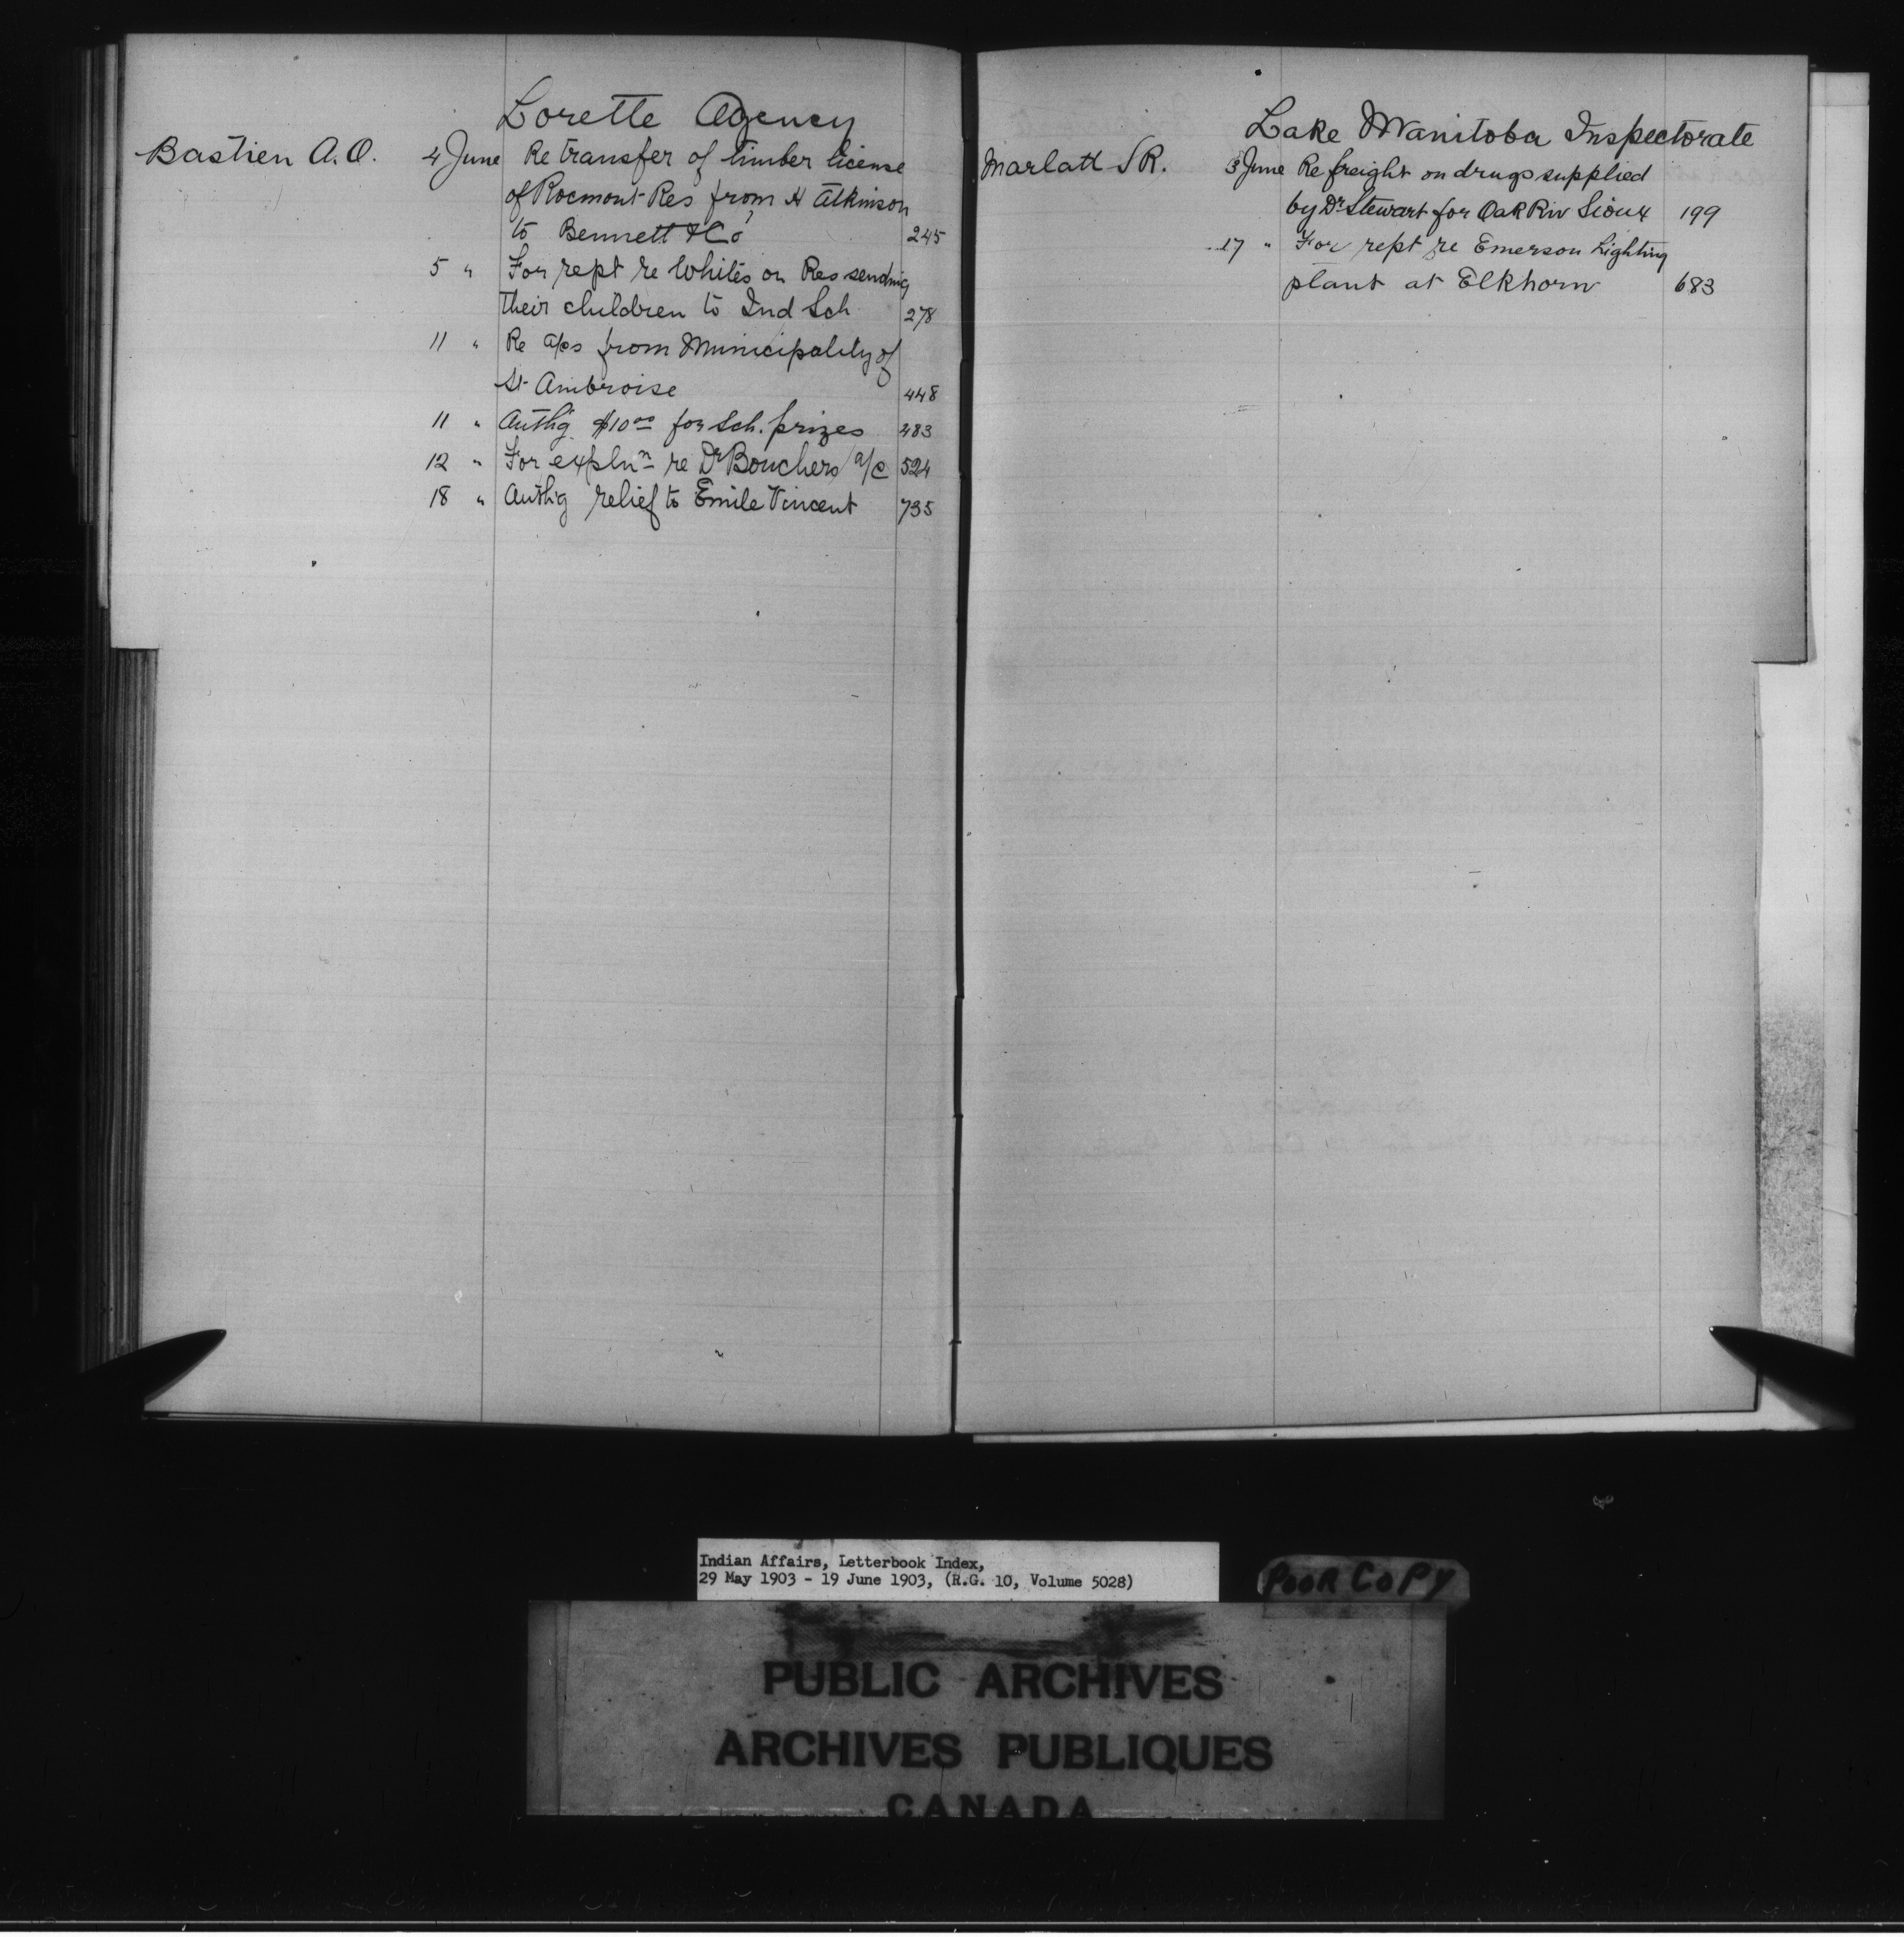 Lorette Agency
Bastien A.O. 4 June Re transfer of timber license
of Rocmont Res from H Atkinson
to Bennett & Co 245
5 " For rept re Whites on Res sending
their children to Ind Sch 278
11 " Re a/cs from Municipality of
St Ambroise 448
11 " Authg $10 00 for Sch. prizes 483
12 " For expln n re Dr Bouchers a/c 524
18 " Authg relief to Emile Vincent 735
Lake Manitoba Inspectorate
Marlatt S R. 3 June Re freight on drugs supplied
by Dr Stewart for Oak Riv Sioux 199
17 " For rept re Emerson Lighting
plant at Elkhorn 683
Indian Affairs, Letterbook Index,
29 May 1903 - 19 June 1903, (R.G. 10, Volume 5028)
POOR COPY
PUBLIC ARCHIVES
ARCHIVES PUBLIQUES
CANADA